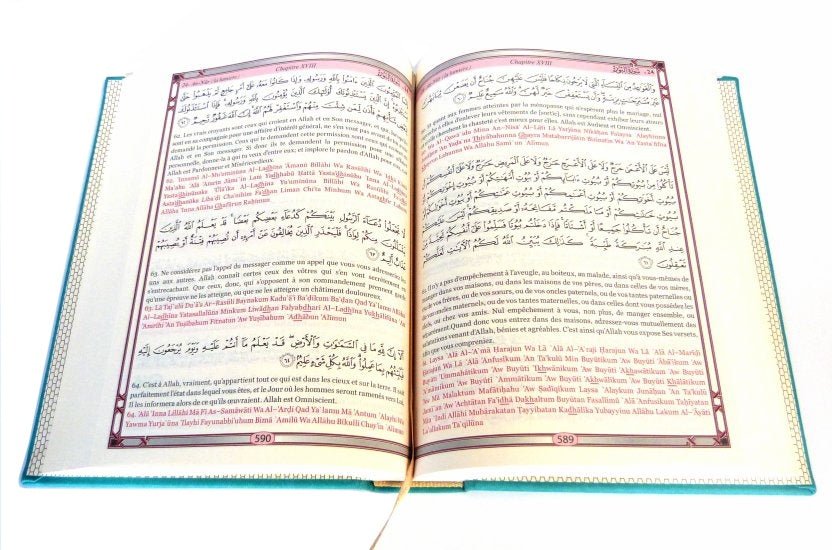 Chapitre XVIII
24
وَالْقَوَاعِدُ مِنَ النِّسَاءِ الَّاتِي لَا يَرْجُونَ نِكَاحًا فَلَيْسَ عَلَيْهِنَّ جُنَاحٌ أَن يَضَعْنَ
ثِيَابَهُنَّ غَيْرَ مُتَبَرِّجَاتٍ بِزِينَةٍ وَأَن يَسْتَعْفِفْنَ خَيْرٌ لَّهُنَّ وَاللَّهُ سَمِيعٌ عَلِيمٌ
aux femmes atteintes par la ménopause qui n'espèrent plus le mariage, nul
d'enlever leurs vêtements de [sortie], sans cependant exhiber leurs atours
la chasteté c'est mieux pour elles. Allah est Audient et Omniscient.
Mina An-Nisā' Al-Lātī Lā Yarjūna Nikāĥāan Falaysa `Alayhinna
'An Yađa`na Thiyābahunna Ghayra Mutabarrijātin Bizīnatin Wa 'An Yasta`fifna
Lahunna Wa Allāhu Samī`un `Alīmun
لَيْسَ عَلَى الْأَعْمَى حَرَجٌ وَلَا عَلَى الْأَعْرَجِ حَرَجٌ وَلَا عَلَى الْمَرِيضِ حَرَجٌ وَلَا عَلَى أَنفُسِكُمْ أَن
تَأْكُلُوا مِن بُيُوتِكُمْ أَوْ بُيُوتِ آبَائِكُمْ أَوْ بُيُوتِ أُمَّهَاتِكُمْ أَوْ بُيُوتِ إِخْوَانِكُمْ أَوْ بُيُوتِ
أَخَوَاتِكُمْ أَوْ بُيُوتِ أَعْمَامِكُمْ أَوْ بُيُوتِ عَمَّاتِكُمْ أَوْ بُيُوتِ أَخْوَالِكُمْ أَوْ بُيُوتِ
خَالَاتِكُمْ أَوْ مَا مَلَكْتُم مَّفَاتِحَهُ أَوْ صَدِيقِكُمْ لَيْسَ عَلَيْكُمْ
جُنَاحٌ أَن تَأْكُلُوا جَمِيعًا أَوْ أَشْتَاتًا فَإِذَا دَخَلْتُم بُيُوتًا فَسَلِّمُوا عَلَى أَنفُسِكُمْ تَحِيَّةً مِّنْ
عِندِ اللَّهِ مُبَارَكَةً طَيِّبَةً كَذَلِكَ يُبَيِّنُ اللَّهُ لَكُمُ الْآيَاتِ لَعَلَّكُمْ
تَعْقِلُونَ
61. Il n'y a pas d'empêchement à l'aveugle, au boiteux, au malade, ainsi qu'à vous-mêmes de
manger dans vos maisons, ou dans les maisons de vos pères, ou dans celles de vos mères,
ou de vos frères, ou de vos sœurs, ou de vos oncles paternels, ou de vos tantes paternelles ou
maternels, ou de vos tantes maternelles, ou dans celles dont vous possédez les
clefs, ou chez vos amis. Nul empêchement à vous, non plus, de manger ensemble, ou
séparément. Quand donc vous entrez dans des maisons, adressez-vous mutuellement des
salutations venant d'Allah, bénies et agréables. C'est ainsi qu'Allah vous expose Ses versets,
afin que vous compreniez.
Laysa `Alá Al-'A`má Ĥarajun Wa Lā `Alá Al-'A`raji Ĥarajun Wa Lā `Alá Al-Marīđi
Ĥarajun Wa Lā `Alá 'Anfusikum 'An Ta'kulū Min Buyūtikum 'Aw Buyūti 'Ābā'ikum 'Aw
Buyūti 'Ummahātikum 'Aw Buyūti 'Ikhwānikum 'Aw Buyūti 'Akhawātikum 'Aw Buyūti
'A`māmikum 'Aw Buyūti `Ammātikum 'Aw Buyūti 'Akhwālikum 'Aw Buyūti Khālātikum
'Aw Mā Malaktum Mafātiĥahu 'Aw Şadīqikum Laysa `Alaykum Junāĥun 'An Ta'kulū
Jamī`an 'Aw 'Ashtātan Fa'idhā Dakhaltum Buyūtan Fasallimū `Alá 'Anfusikum Taĥīyatan
Min `Indi Allāhi Mubārakatan Ţayyibatan Kadhālika Yubayyinu Allāhu Lakum Al-'Āyāti
La`allakum Ta`qilūna
589
24- An-Nūr (la lumière)
Chapitre XVIII
إِنَّمَا الْمُؤْمِنُونَ الَّذِينَ آمَنُوا بِاللَّهِ وَرَسُولِهِ وَإِذَا كَانُوا مَعَهُ عَلَى أَمْرٍ جَامِعٍ لَّمْ يَذْهَبُوا
حَتَّى يَسْتَأْذِنُوهُ إِنَّ الَّذِينَ يَسْتَأْذِنُونَكَ أُولَئِكَ الَّذِينَ يُؤْمِنُونَ بِاللَّهِ وَرَسُولِهِ فَإِذَا اسْتَأْذَنُوكَ
لِبَعْضِ شَأْنِهِمْ فَأْذَن لِّمَن شِئْتَ مِنْهُمْ وَاسْتَغْفِرْ لَهُمُ اللَّهَ إِنَّ اللَّهَ غَفُورٌ رَّحِيمٌ
62. Les vrais croyants sont ceux qui croient en Allah et en Son messager, et qui, lorsqu'ils
sont en sa compagnie pour une affaire d'intérêt général, ne s'en vont pas avant de lui avoir
demandé la permission. Ceux qui te demandent cette permission sont ceux qui croient en
Allah et en Son messager. Si donc ils te demandent la permission pour une affaire
personnelle, donne-la à qui tu veux d'entre eux; et implore le pardon d'Allah pour eux, car
Allah est Pardonneur et Miséricordieux.
62. 'Innamā Al-Mu'uminūna Al-Ladhīna 'Āmanū Billāhi Wa Rasūlihi Wa 'Idhā Kānū
Ma`ahu `Alá 'Amrin Jāmi`in Lam Yadhhabū Ĥattá Yasta'dhinūhu 'Inna Al-Ladhīna
Yasta'dhinūnaka 'Ūlā'ika Al-Ladhīna Yu'uminūna Billāhi Wa Rasūlihi Fa'idhā
Asta'dhanūka Liba`đi Sha'nihim Fa'dhan Liman Shi'ta Minhum Wa Astaghfir Lahumu
Allāha 'Inna Allāha Ghafūrun Raĥīmun
لَّا تَجْعَلُوا دُعَاءَ الرَّسُولِ بَيْنَكُمْ كَدُعَاءِ بَعْضِكُم بَعْضًا قَدْ يَعْلَمُ اللَّهُ الَّذِينَ
يَتَسَلَّلُونَ مِنكُمْ لِوَاذًا فَلْيَحْذَرِ الَّذِينَ يُخَالِفُونَ عَنْ أَمْرِهِ أَن تُصِيبَهُمْ فِتْنَةٌ أَوْ يُصِيبَهُمْ
عَذَابٌ أَلِيمٌ
63. Ne considérez pas l'appel du messager comme un appel que vous vous adresseriez les
uns aux autres. Allah connaît certes ceux des vôtres qui s'en vont secrètement en
s'entrecachant. Que ceux, donc, qui s'opposent à son commandement prennent garde
qu'une épreuve ne les atteigne, ou que ne les atteigne un châtiment douloureux.
63. Lā Taj`alū Du`ā'a Ar-Rasūli Baynakum Kadu`ā'i Ba`đikum Ba`đan Qad Ya`lamu Allāhu
Al-Ladhīna Yatasallalūna Minkum Liwādhan Falyaĥdhari Al-Ladhīna Yukhālifūna `An
'Amrihi 'An Tuşībahum Fitnatun 'Aw Yuşībahum `Adhābun 'Alīmun
أَلَا إِنَّ لِلَّهِ مَا فِي السَّمَاوَاتِ وَالْأَرْضِ قَدْ يَعْلَمُ مَا أَنتُمْ عَلَيْهِ وَيَوْمَ يُرْجَعُونَ إِلَيْهِ
فَيُنَبِّئُهُم بِمَا عَمِلُوا وَاللَّهُ بِكُلِّ شَيْءٍ عَلِيمٌ
64. C'est à Allah, vraiment, qu'appartient tout ce qui est dans les cieux et sur la terre. Il sait
parfaitement l'état dans lequel vous êtes, et le Jour où les hommes seront ramenés vers Lui,
Il les informera alors de ce qu'ils œuvraient. Allah est Omniscient.
64. 'Alā 'Inna Lillāhi Mā Fī As-Samāwāti Wa Al-'Arđi Qad Ya`lamu Mā 'Antum `Alayhi Wa
Yawma Yurja`ūna 'Ilayhi Fayunabbi'uhum Bimā `Amilū Wa Allāhu Bikulli Shay'in `Alīmun
590